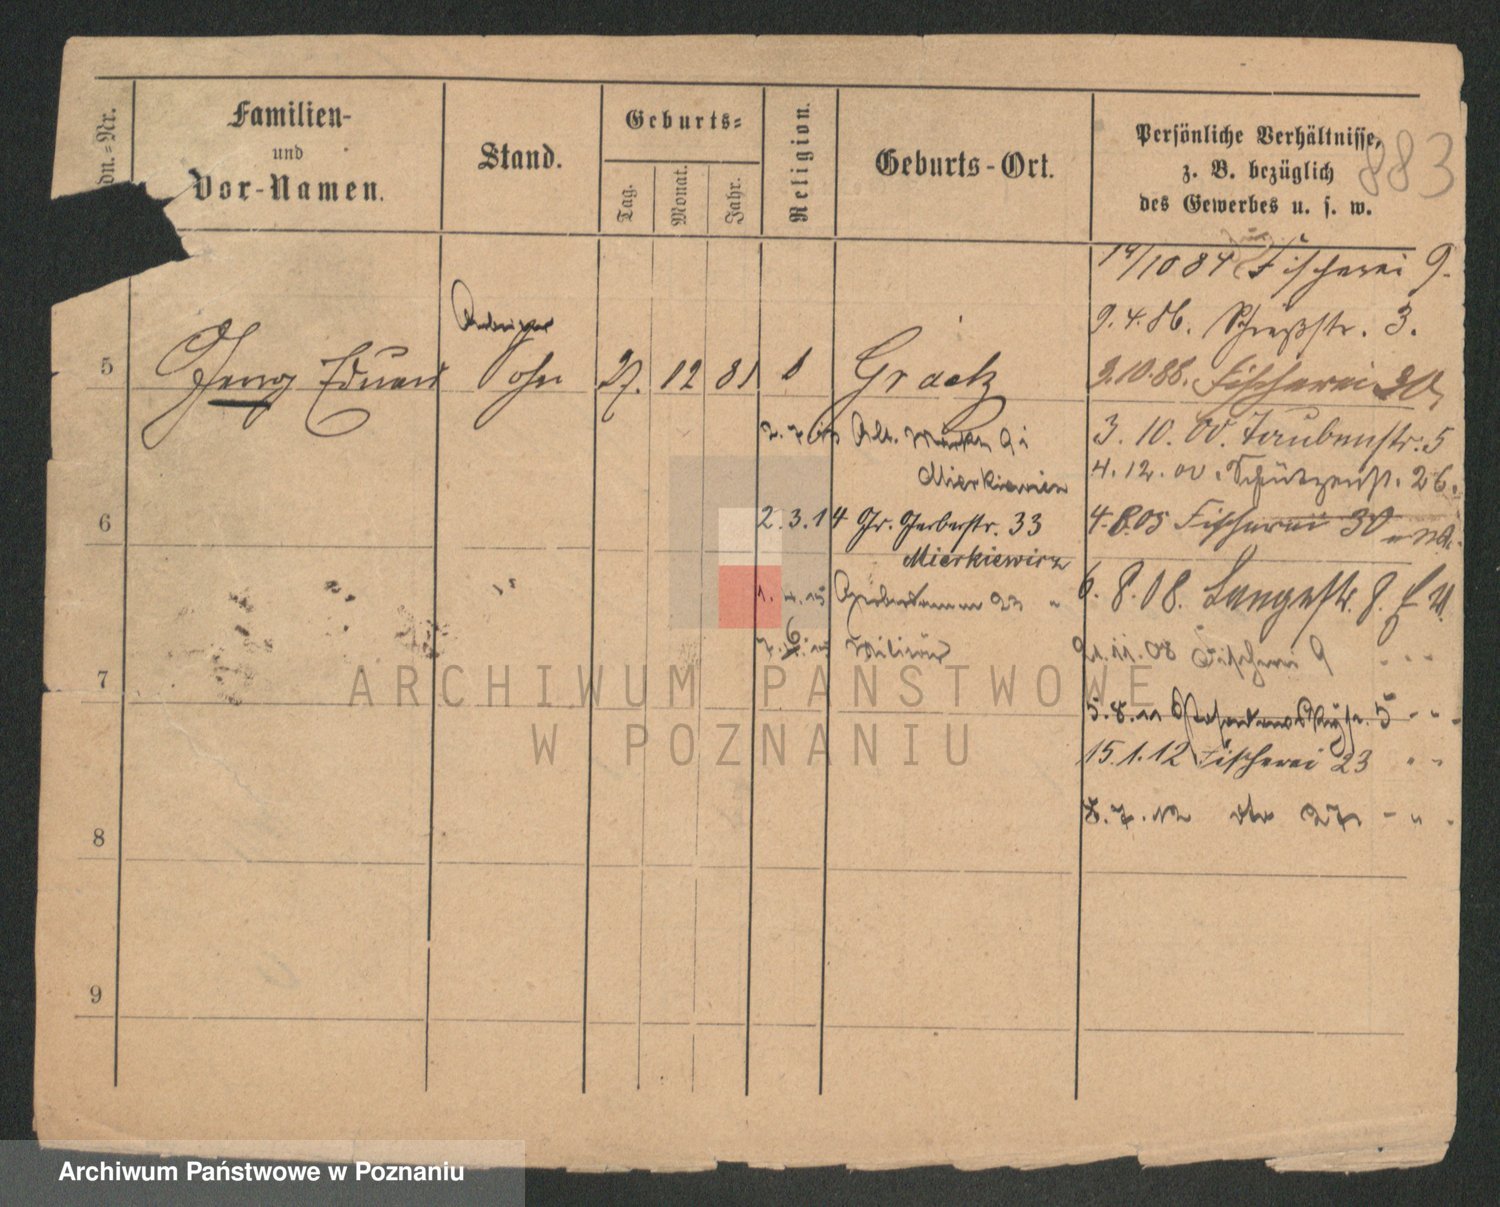 dn.-Nr.
Familien-
und
Vor-Namen.
Stand.
Geburts-
Tag.
Monat.
Jahr.
Religion.
Geburts-Ort.
Persönliche Verhältnisse,
z. B. bezüglich
des Gewerbes u. s. w.
883
14/10 84 Fischerei 9.
9. 4. 86. Schießstr. 3.
5
Eduard Sohn 27. 12 81 Graetz
3. 10. 88. Fischerei
3. 10. 00. Taubenstr. 5
Mierkiewicz
4. 12. 00. Schützenstr. 26.
6
2. 3. 14 Gr. Gerberstr. 33
Mierkiewicz
4. 8. 05 Fischerei 30
Gerberdamm 23
6. 8. 08. Langestr. 8.
21. 11. 08 Fischerei 9
7
5. 8. 11
15. 1. 12 Fischerei 23
8. 7. 12 dto 27
8
9
ARCHIWUM PAŃSTWOWE
W POZNANIU
Archiwum Państwowe w Poznaniu